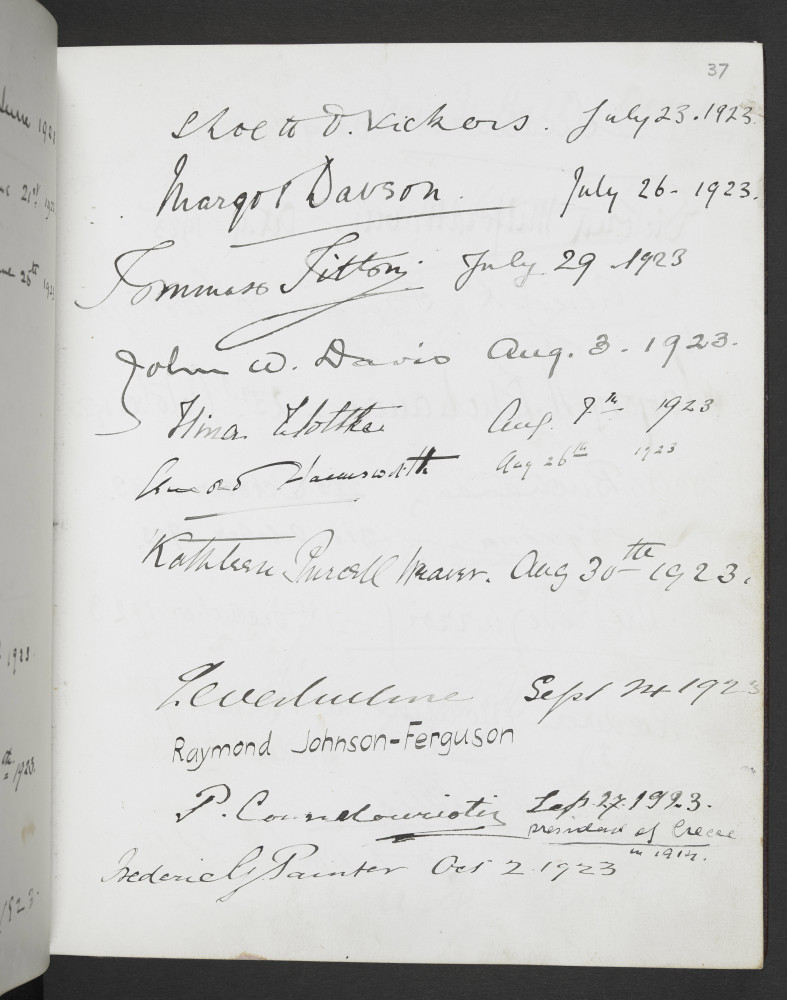 37
D. Vickers. July 23. 1923.
Margot Davson July 26- 1923.
Tommaso Tittoni July 29 . 1923
John W. Davis Aug. 3. 1923.
Aug. 7th 1923
Harmsworth Aug 26th 1923
Kathleen Purcell Weaver. Aug 30th 1923.
Leverhulme Sept 24 1923
Raymond Johnson-Ferguson
P. Coundouriotis Sep. 27. 1923.
president of Greece
in 1914.
Frederic G Painter Oct 2. 1923
June 1921
21st
25th
1923
1923.
1923.